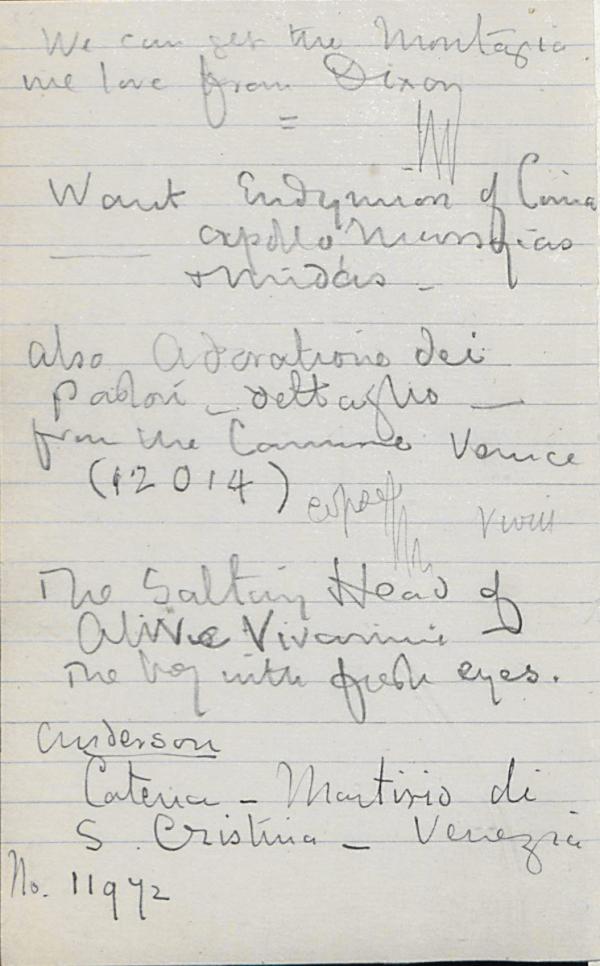 We can get the Montagna
we love from Dixon
=
Want Endymion of Cima
apollo Marsyias
+ midas -
also Adoratione dei
pastori - dettaglio -
from the Carmine Venice
(12014)
The Salting Head of
Alvise Vivarini -
The boy with fresh eyes.
Anderson
Catena - Martirio di
S. Cristina - Venezia
No. 11972